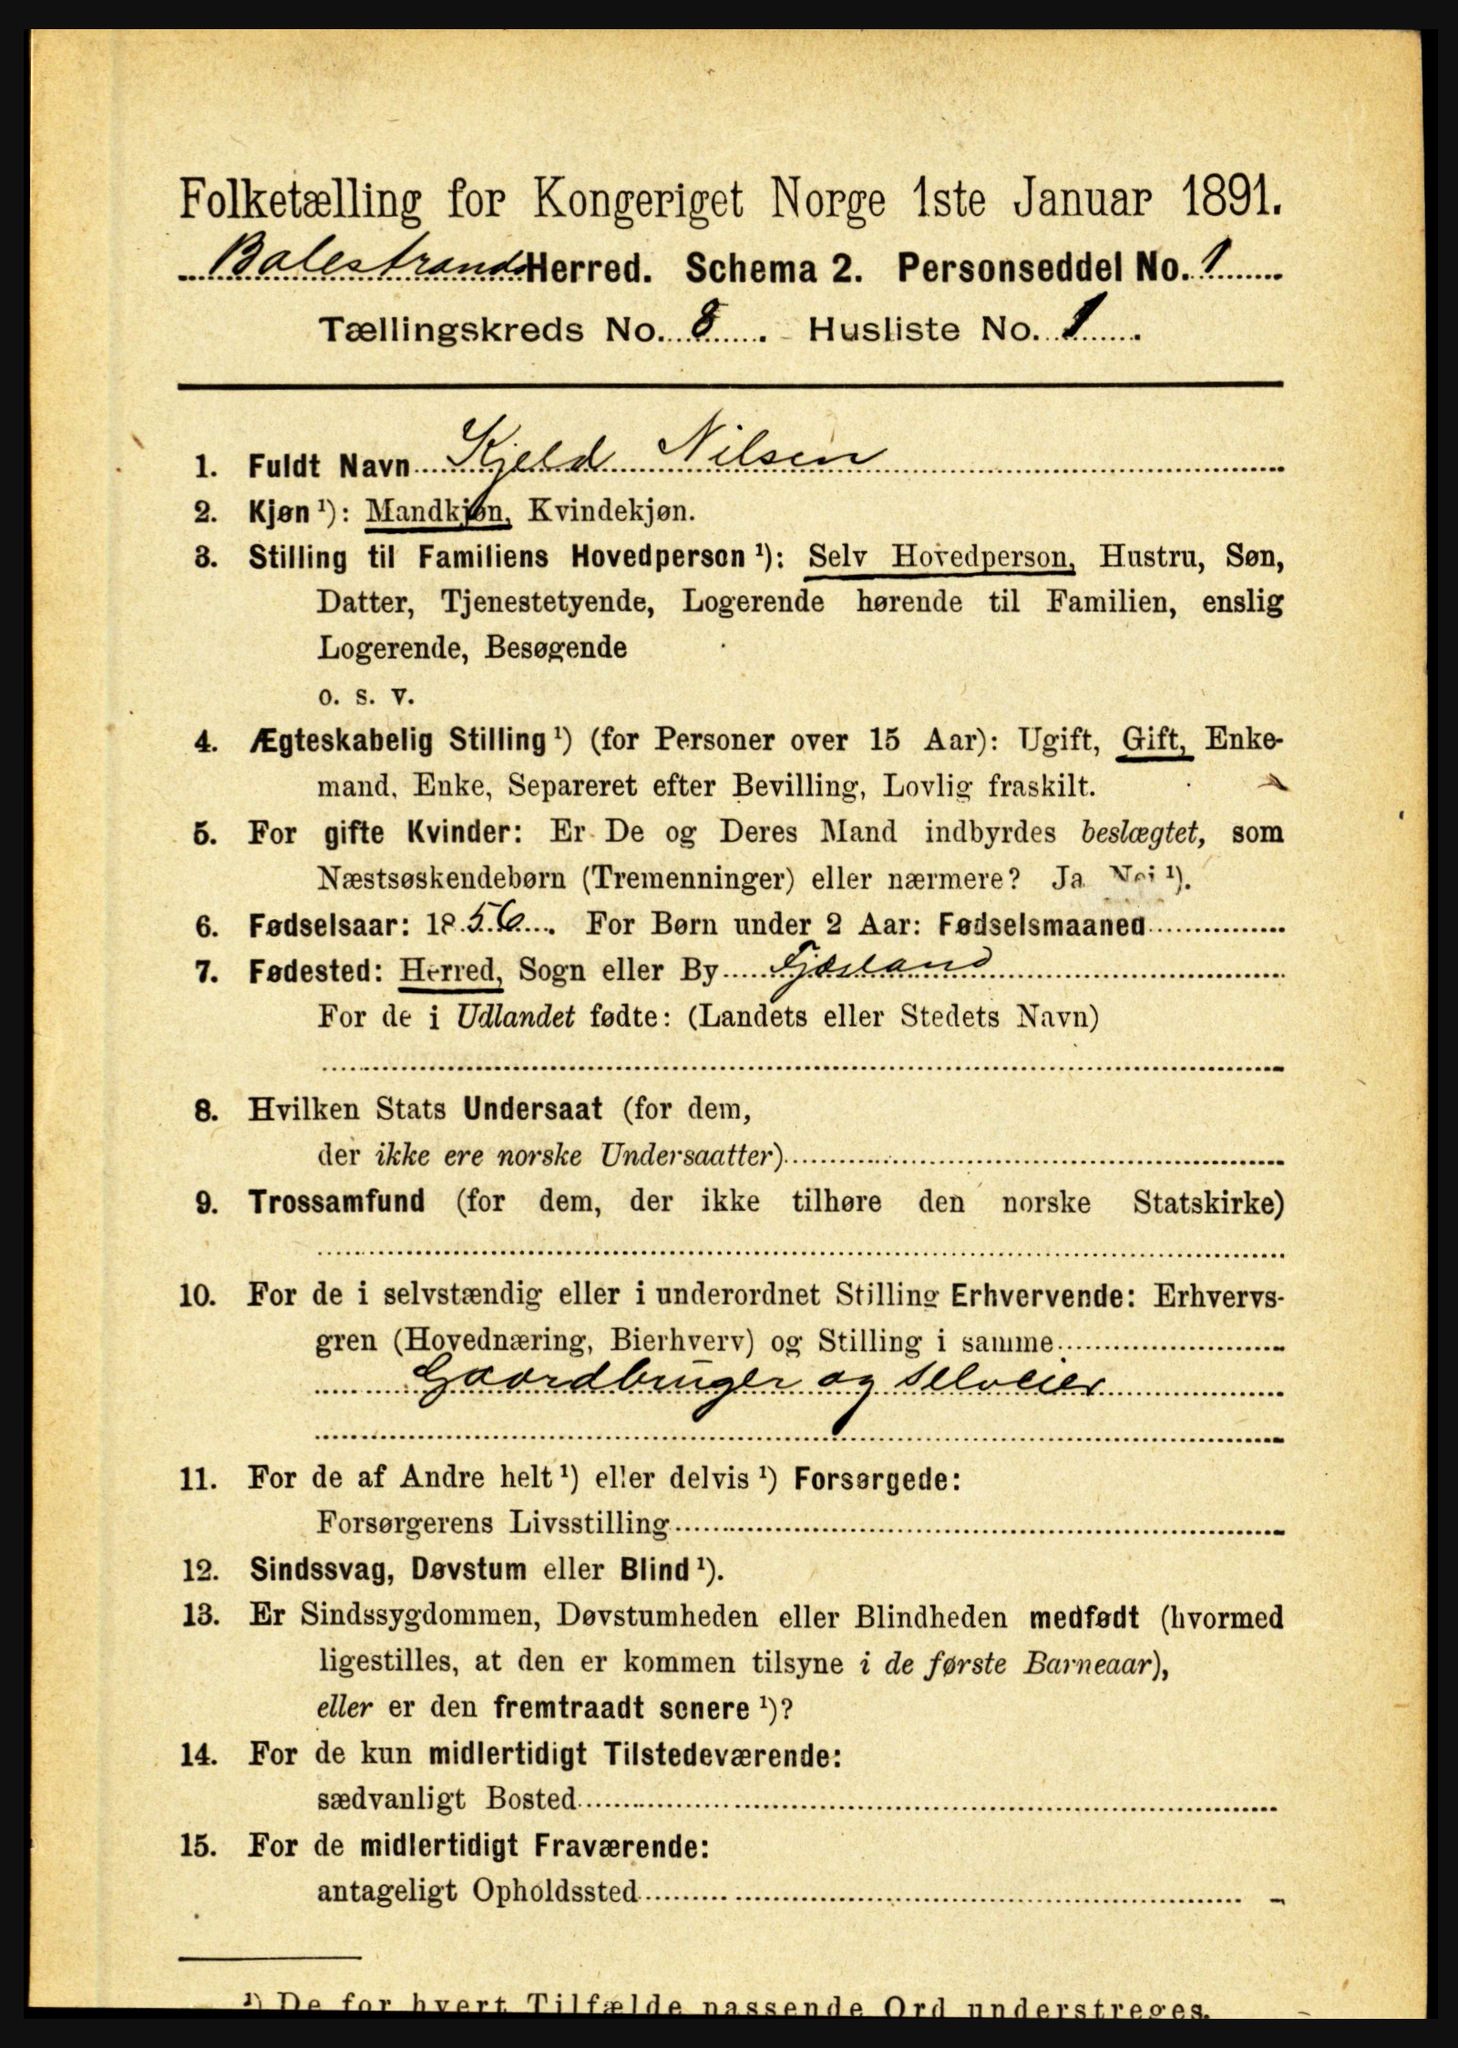 Folketælling for Kongeriget Norge 1ste Januar 1891.
Balestrands Herred. Schema 2. Personseddel No. 1
Tællingskreds No. 8. Husliste No. 1.
1. Fuldt Navn Kjeld Nilsen
2. Kjøn ¹): Mandkjøn, Kvindekjøn.
3. Stilling til Familiens Hovedperson ¹): Selv Hovedperson, Hustru, Søn,
Datter, Tjenestetyende, Logerende hørende til Familien, enslig
Logerende, Besøgende
o. s. v.
4. Ægteskabelig Stilling ¹) (for Personer over 15 Aar): Ugift, Gift, Enke-
mand, Enke, Separeret efter Bevilling, Lovlig fraskilt.
5. For gifte Kvinder: Er De og Deres Mand indbyrdes beslægtet, som
Næstsøskendebørn (Tremenninger) eller nærmere? Ja Nei ¹).
6. Fødselsaar: 1856. For Børn under 2 Aar: Fødselsmaaned
7. Fødested: Herred, Sogn eller By Fjærland
For de i Udlandet fødte: (Landets eller Stedets Navn)
8. Hvilken Stats Undersaat (for dem,
der ikke ere norske Undersaatter)
9. Trossamfund (for dem, der ikke tilhøre den norske Statskirke)
10. For de i selvstændig eller i underordnet Stilling Erhvervende: Erhvervs-
gren (Hovednæring, Bierhverv) og Stilling i samme
Gaardbruger og Selveier
11. For de af Andre helt ¹) eller delvis ¹) Forsørgede:
Forsørgerens Livsstilling
12. Sindssvag, Døvstum eller Blind ¹).
13. Er Sindssygdommen, Døvstumheden eller Blindheden medfødt (hvormed
ligestilles, at den er kommen tilsyne i de første Barneaar),
eller er den fremtraadt senere ¹)?
14. For de kun midlertidigt Tilstedeværende:
sædvanligt Bosted
15. For de midlertidigt Fraværende:
antageligt Opholdssted
¹) De for hvert Tilfælde passende Ord understreges.